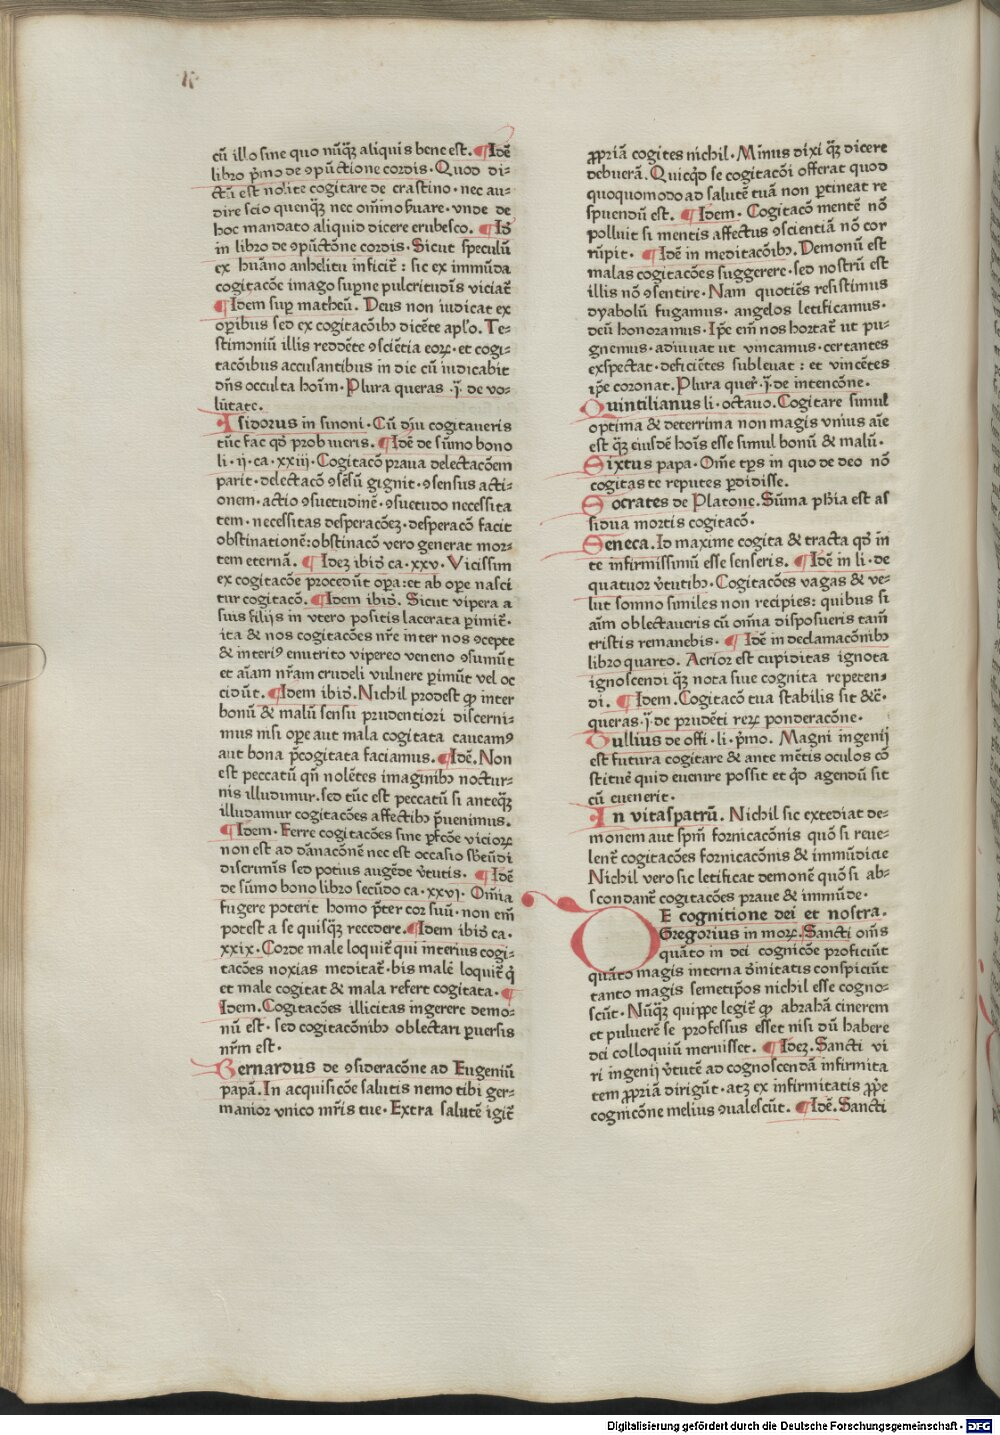 cū illo sine quo nūqȝ aliquis bene est. ¶Idē
libro p̄mo de ꝯpūctione cordis. Quod di⸗
ctū est nolite cogitare de crastino. nec au⸗
dire scio quenqȝ nec om̄ino ẜuare. vnde de
hoc mandato aliquid dicere erubesco. ¶Id̄
in libro de ꝯpūctōne cordis. Sicut speculū
ex hūano anhelitu inficit᷑ : sic ex immūda
cogitacōe imago sup̱ne pulcritudīs viciat᷑
¶Idem sup̱ matheū. Deus non iudicat ex
op̱ibus sed ex cogitacōībȝ dicēte apl̄o. Te⸗
stimoniū illis reddēte ꝯsciētia eoꝝ. et cogi⸗
tacōibus accusantibus in die cū iudicabit
dn̄s occulta hoīm. Plura queras .j̄. de vo⸗
lūtate.
Isidorus in sinoni. Cū diu cogitaueris
tūc fac qd̄ probaueris. ¶Idē de sūmo bono
li. ij. ca. xxiij. Cogitacō praua delectacōem
parit. delectacō ꝯsēsū gignit. ꝯsensus acti⸗
onem. actio ꝯsuetudinē. ꝯsuetudo necessita
tem. necessitas desperacōeȝ. desperacō facit
obstinationē: obstinacō vero generat mor⸗
tem eternā. ¶Ideȝ ibid̄ ca. xxv. Vicissim
ex cogitacōe procedūt op̱a: et ab op̱e nasci
tur cogitacō. ¶Idem ibid̄. Sicut vipera a
suis filijs in vtero positis lacerata p̱imit᷑.
ita & nos cogitacōes nr̄e inter nos ꝯcepte
& interiꝰ enutrito vipereo veneno ꝯsumūt
et aīam nr̄am crudeli vulnere p̱imūt vel oc
cidūt. ¶Idem ibid̄. Nichil prodest ꝙ inter
bonū & malū sensu prudentiori discerni⸗
mus nisi op̱e aut mala cogitata caueamꝰ
aut bona p̄cogitata faciamus. ¶Idē. Non
est peccatū qn̄ nolētes imaginibȝ noctur⸗
nis illudimur. sed tūc est peccatū si anteqȝ
illudamur cogitacōes affectibȝ p̄uenimus.
¶Idem. Ferre cogitacōes sine p̱fcōe vicioꝝ
non est ad dānacōnē nec est occasio sb̄eūdi
discrimīs sed potius augēde v̄tutis. ¶Idē
de sūmo bono libro secūdo ca. xxvi. Om̄ia
fugere poterit homo p̄ter cor suū. non em̄
potest a se quisqȝ recedere. ¶Idem ibid̄ ca.
xxix. Corde male loquit᷑ qui interius cogi⸗
tacōes noxias meditat᷑. bis male loquit᷑ q̇
et male cogitat & mala refert cogitata. ¶
Idem. Cogitacōes illicitas ingerere demo⸗
nū est. sed cogitacōnibȝ oblectari p̱uersis
nr̄m est.
Bernardus de ꝯsideracōne ad Eugeniū
papā. In acquisicōe salutis nemo tibi ger⸗
manior vnico mr̄is tue. Extra salutē igit᷑
ꝓpriā cogites nichil. Minus dixi qȝ dicere
debuerā. Quicqd̄ se cogitacōi offerat quod
quoquomodo ad salutē tuā non p̱tineat re
spuendū est. ¶Idem. Cogitacō mentē nō
polluit si mentis affectus ꝯscientiā nō cor
rūpit. ¶Idē in meditacōibȝ. Demonū est
malas cogitacōes suggerere. sed nostrū est
illis nō ꝯsentire. Nam quotiēs resistimus
dyabolū fugamus. angelos letificamus.
deū honoramus. Ip̄e em̄ nos hortat᷑ ut pu⸗
gnemus. adiuuat ut vincamus. certantes
exspectat. deficiētes subleuat : et vincētes
ip̄e coronat. Plura quer̄ .j̄. de intencōne.
Quintilianus li. octauo. Cogitare simul
optima & deterrima non magis vnius aīe
est qȝ eiusdē hoīs esse simul bonū & malū.
Sixtus papa. Om̄e tp̄s in quo de deo nō
cogitas te reputes p̱didisse.
Socrates de Platone. Sūma ph̄ia est as
sidua mortis cogitacō.
Seneca. Id maxime cogita & tracta qd̄ in
te infirmissimū esse senseris. ¶Idē in li. de
quatuor v̄tutibȝ. Cogitacōes vagas & ve⸗
lut somno similes non recipies: quibus si
aīm oblectaueris cū om̄ia disposueris tam̄
tristis remanebis. ¶Idē in declamacōnibȝ
libro quarto. Acrior est cupiditas ignota
ignoscendi qȝ nota siue cognita repeten⸗
di. ¶Idem. Cogitacō tua stabilis sit &c̄.
queras .j̄. de prudēti reꝝ ponderacōne.
Tullius de offi. li. p̄mo. Magni ingenij
est futura cogitare & ante mētis oculos cō
stituē quid euenire possit et qd̄ agendū sit
cū euenerit.
In vitaspatrū. Nichil sic extediat de⸗
monem aut sp̄m fornicacōnis quō si reue⸗
lent᷑ cogitacōes fornicacōnis & immūdicie
Nichil vero sic letificat demonē quō si ab⸗
scondant᷑ cogitacōes praue & immūde.
DE cognitione dei et nostra.
Gregorius in moꝝ. Sancti om̄s
quāto in dei cognicōe proficiūt
quāto magis interna diuinitatis conspiciūt
tanto magis semetip̄os nichil esse cogno⸗
scūt. Nūqȝ quippe legit᷑ ꝙ abrahā cinerem
et puluerē se professus esset nisi dū habere
dei colloquiū meruisset. ¶Ideȝ. Sancti vi
ri ingenij v̄tutē ad cognoscendā infirmita
tem ꝓpriā dirigūt. atqȝ ex infirmitatis ꝓp̄e
cognicōne melius ꝯualescūt. ¶Idē. Sancti
Digitalisierung gefördert durch die Deutsche Forschungsgemeinschaft - DFG